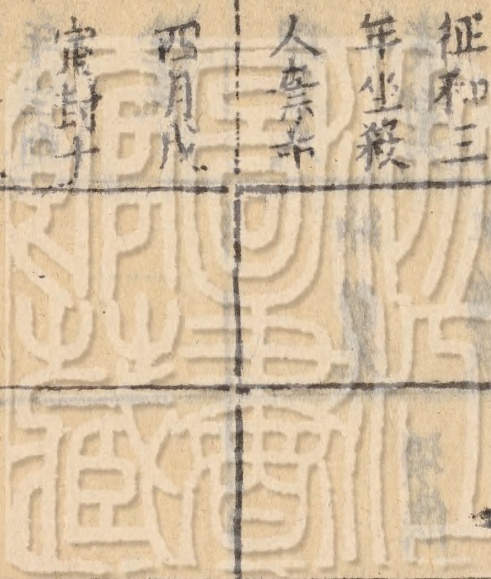 征和三
年坐殺
人棄市
四月戊
寅封十